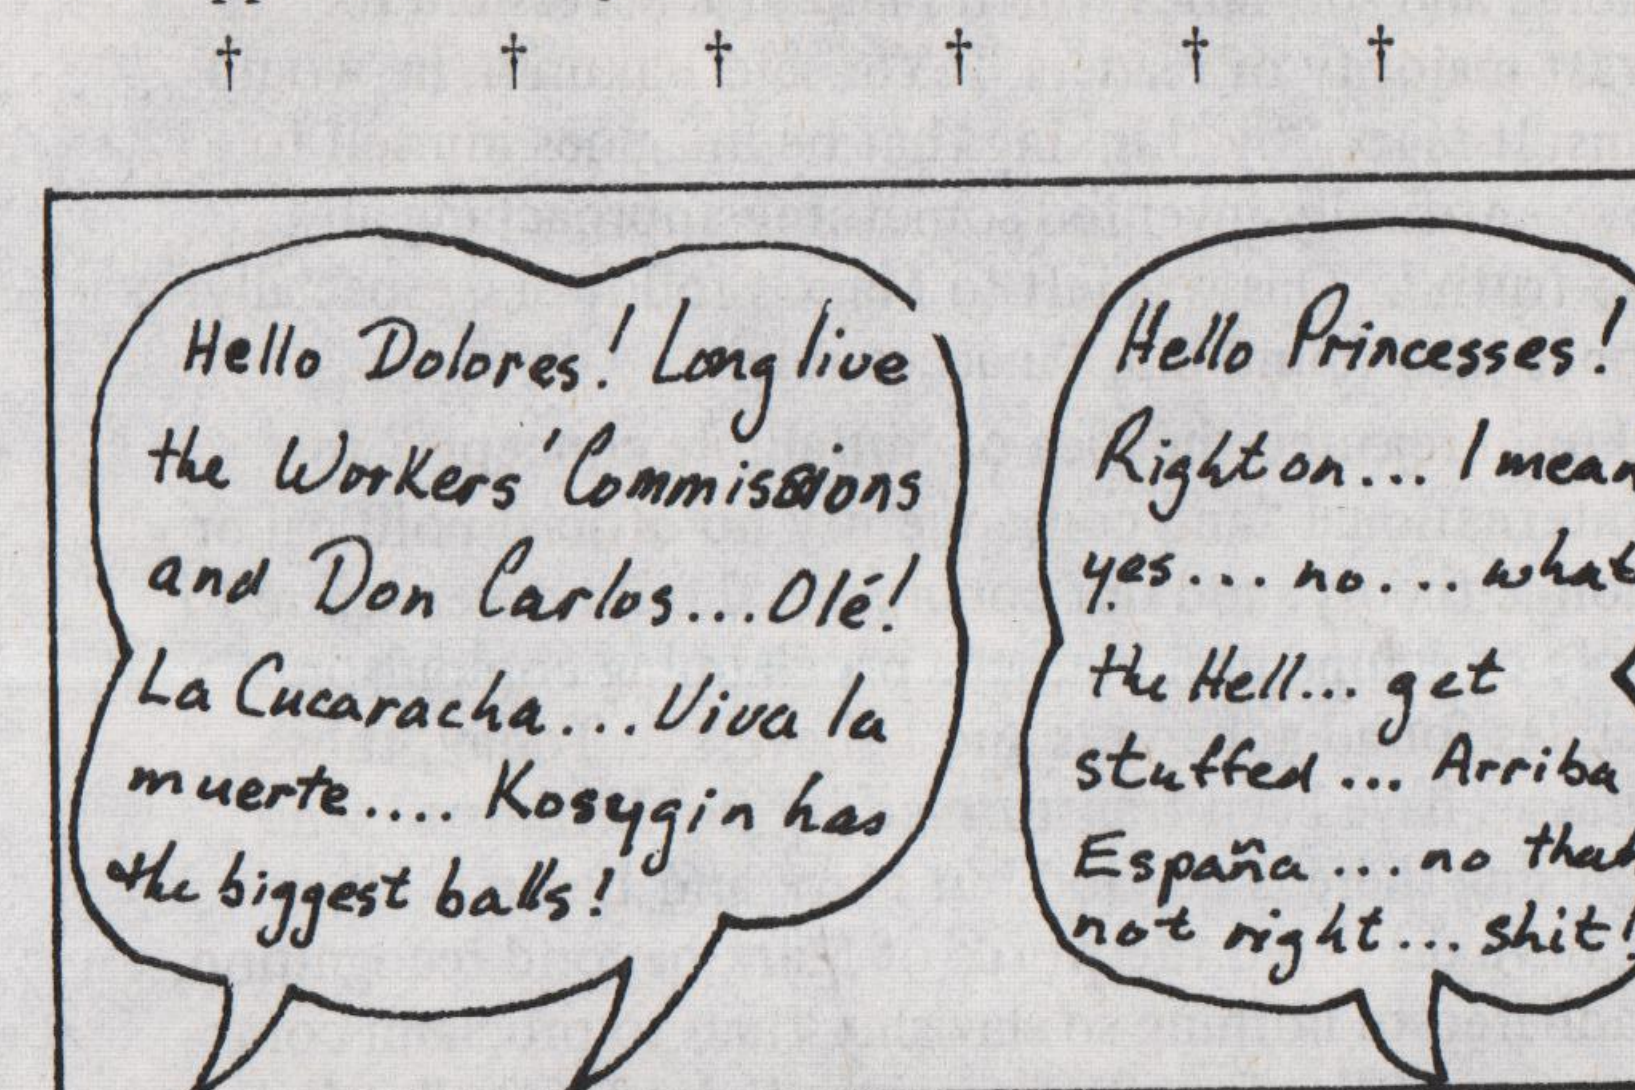 † † † † † †
Hello Dolores! Long live
the Workers' Commissions
and Don Carlos...Olé!
La Cucaracha...Viva la
muerte.... Kosygin has
the biggest balls!
Hello Princesses!
Right on... I mean
yes... no... what
the Hell... get
stuffed... Arriba
España... no
not right... shit!